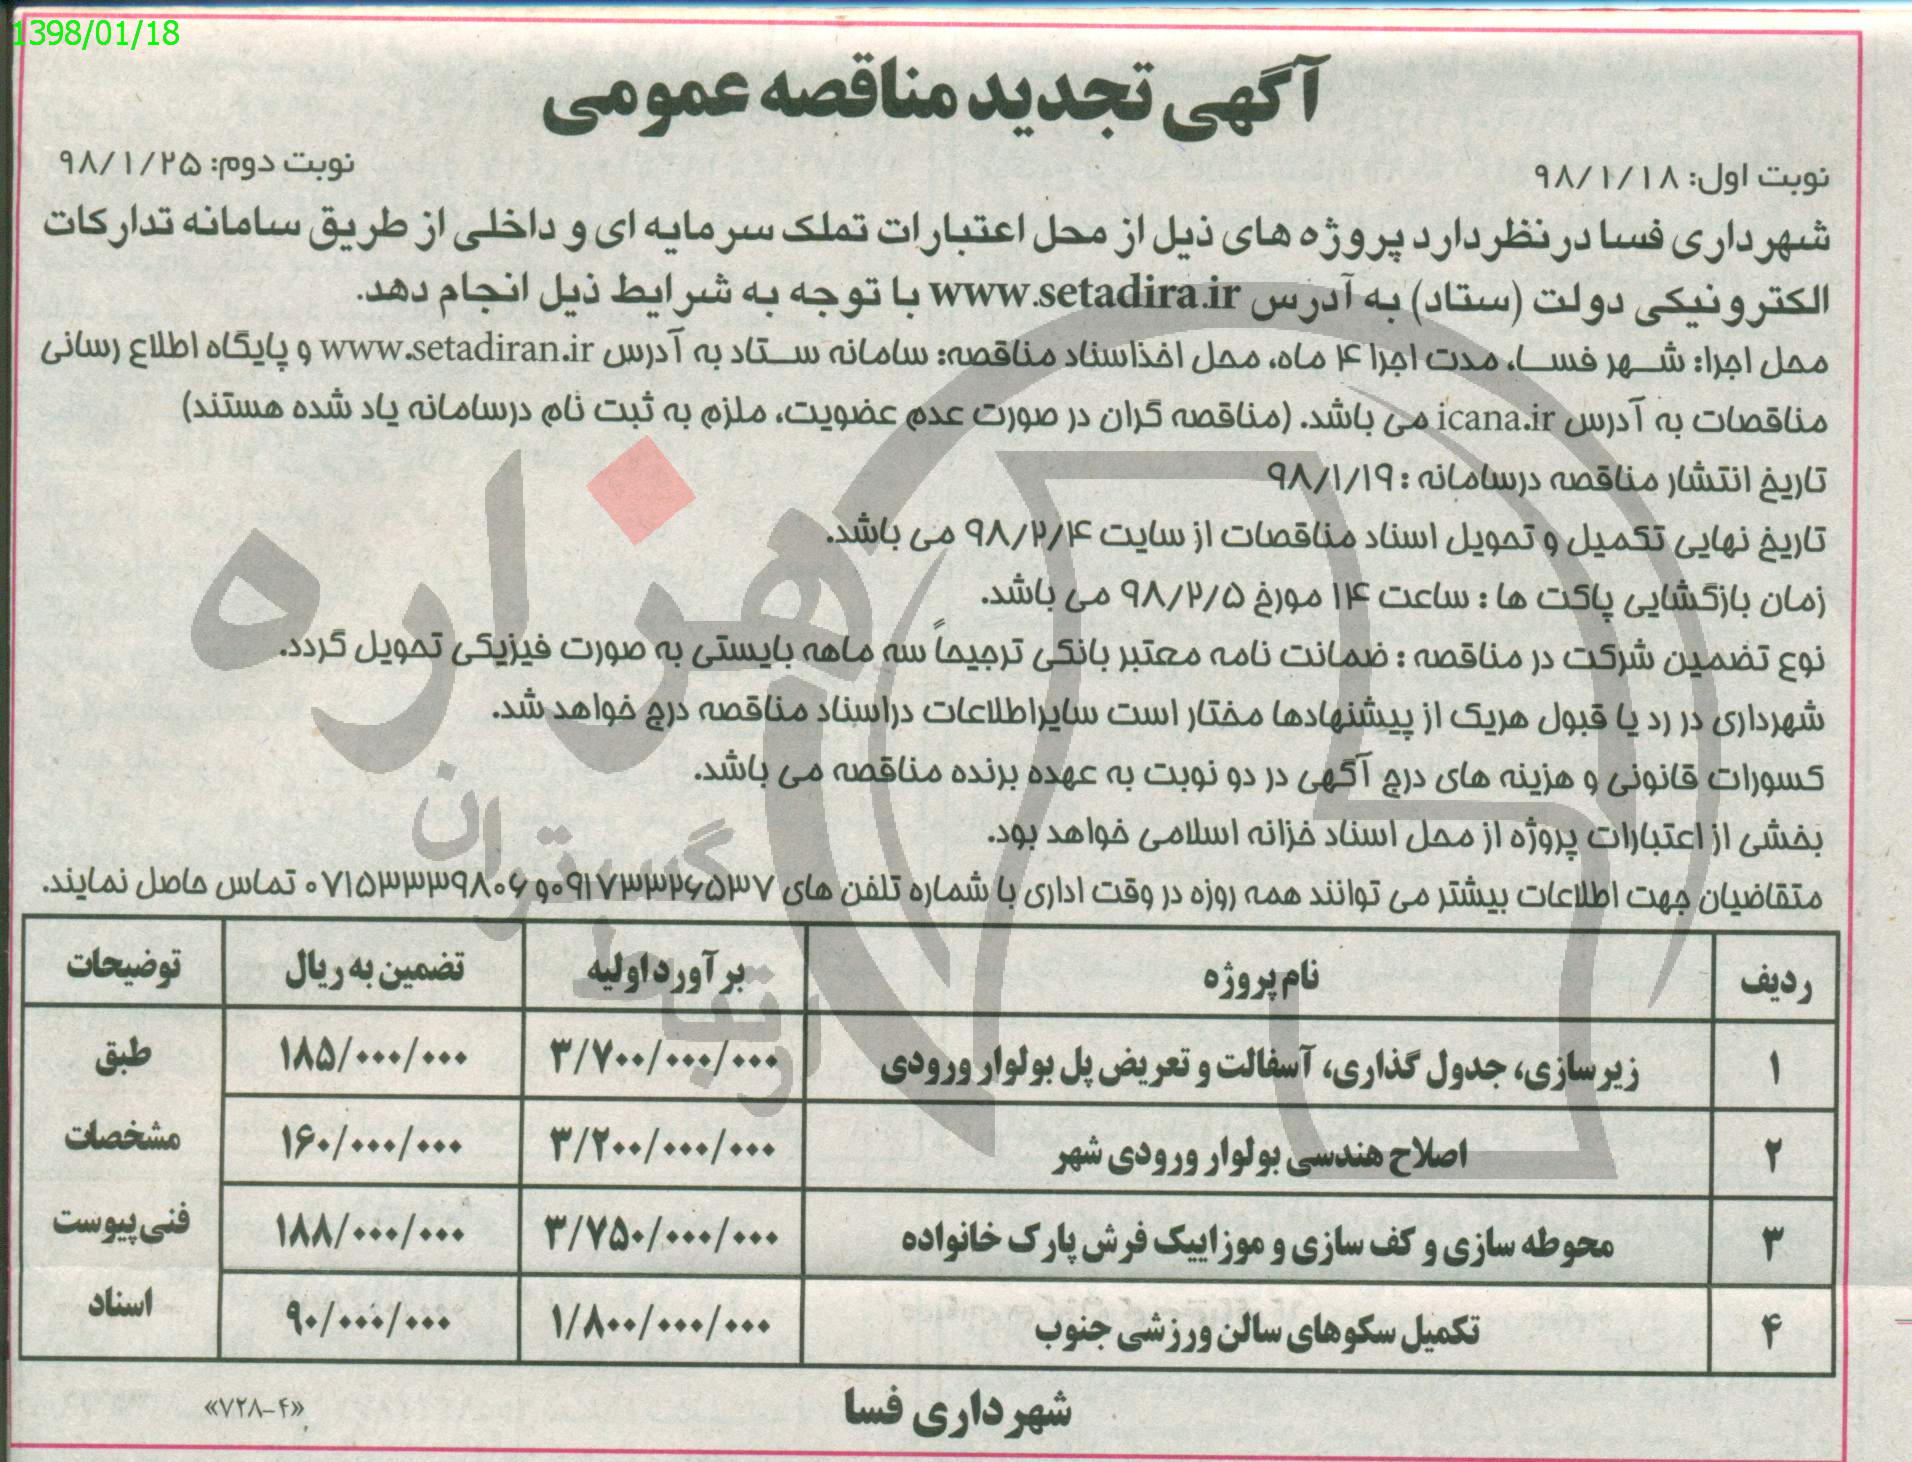 1398/01/18
آگهی تجدید مناقصه عمومی
نوبت اول: ۹۸/۱/۱۸
نوبت دوم: ۹۸/۱/۲۵
شهرداری فسا در نظر دارد پروژه های ذیل از محل اعتبارات تملک سرمایه ای و داخلی از طریق سامانه تدارکات
الکترونیکی دولت (ستاد) به آدرس www.setadira.ir با توجه به شرایط ذیل انجام دهد.
محل اجرا: شهر فسا، مدت اجرا ۴ ماه، محل اخذ اسناد مناقصه: سامانه ستاد به آدرس www.setadiran.ir و پایگاه اطلاع رسانی
مناقصات به آدرس icana.ir می باشد. (مناقصه گران در صورت عدم عضویت، ملزم به ثبت نام در سامانه یاد شده هستند)
تاریخ انتشار مناقصه در سامانه : ۹۸/۱/۱۹
تاریخ نهایی تکمیل و تحویل اسناد مناقصات از سایت ۹۸/۲/۴ می باشد.
زمان بازگشایی پاکت ها : ساعت ۱۴ مورخ ۹۸/۲/۵ می باشد.
نوع تضمین شرکت در مناقصه : ضمانت نامه معتبر بانکی ترجیحاً سه ماهه بایستی به صورت فیزیکی تحویل گردد.
شهرداری در رد یا قبول هریک از پیشنهادها مختار است سایر اطلاعات در اسناد مناقصه درج خواهد شد.
کسورات قانونی و هزینه های درج آگهی در دو نوبت به عهده برنده مناقصه می باشد.
بخشی از اعتبارات پروژه از محل اسناد خزانه اسلامی خواهد بود.
متقاضیان جهت اطلاعات بیشتر می توانند همه روزه در وقت اداری با شماره تلفن های ۰۹۱۷۳۳۲۶۵۳۷ و ۰۷۱۵۳۳۳۹۸۰۶ تماس حاصل نمایند.
ردیف نام پروژه برآورد اولیه تضمین به ریال توضیحات
۱ زیرسازی، جدول گذاری، آسفالت و تعریض پل بولوار ورودی ۳/۷۰۰/۰۰۰/۰۰۰ ۱۸۵/۰۰۰/۰۰۰ طبق
۲ اصلاح هندسی بولوار ورودی شهر ۳/۲۰۰/۰۰۰/۰۰۰ ۱۶۰/۰۰۰/۰۰۰ مشخصات
۳ محوطه سازی و کف سازی و موزاییک فرش پارک خانواده ۳/۷۵۰/۰۰۰/۰۰۰ ۱۸۸/۰۰۰/۰۰۰ فنی پیوست
۴ تکمیل سکوهای سالن ورزشی جنوب ۱/۸۰۰/۰۰۰/۰۰۰ ۹۰/۰۰۰/۰۰۰ اسناد
شهرداری فسا
«۷۲۸-۴»
هزاره
گستران
ارتباط